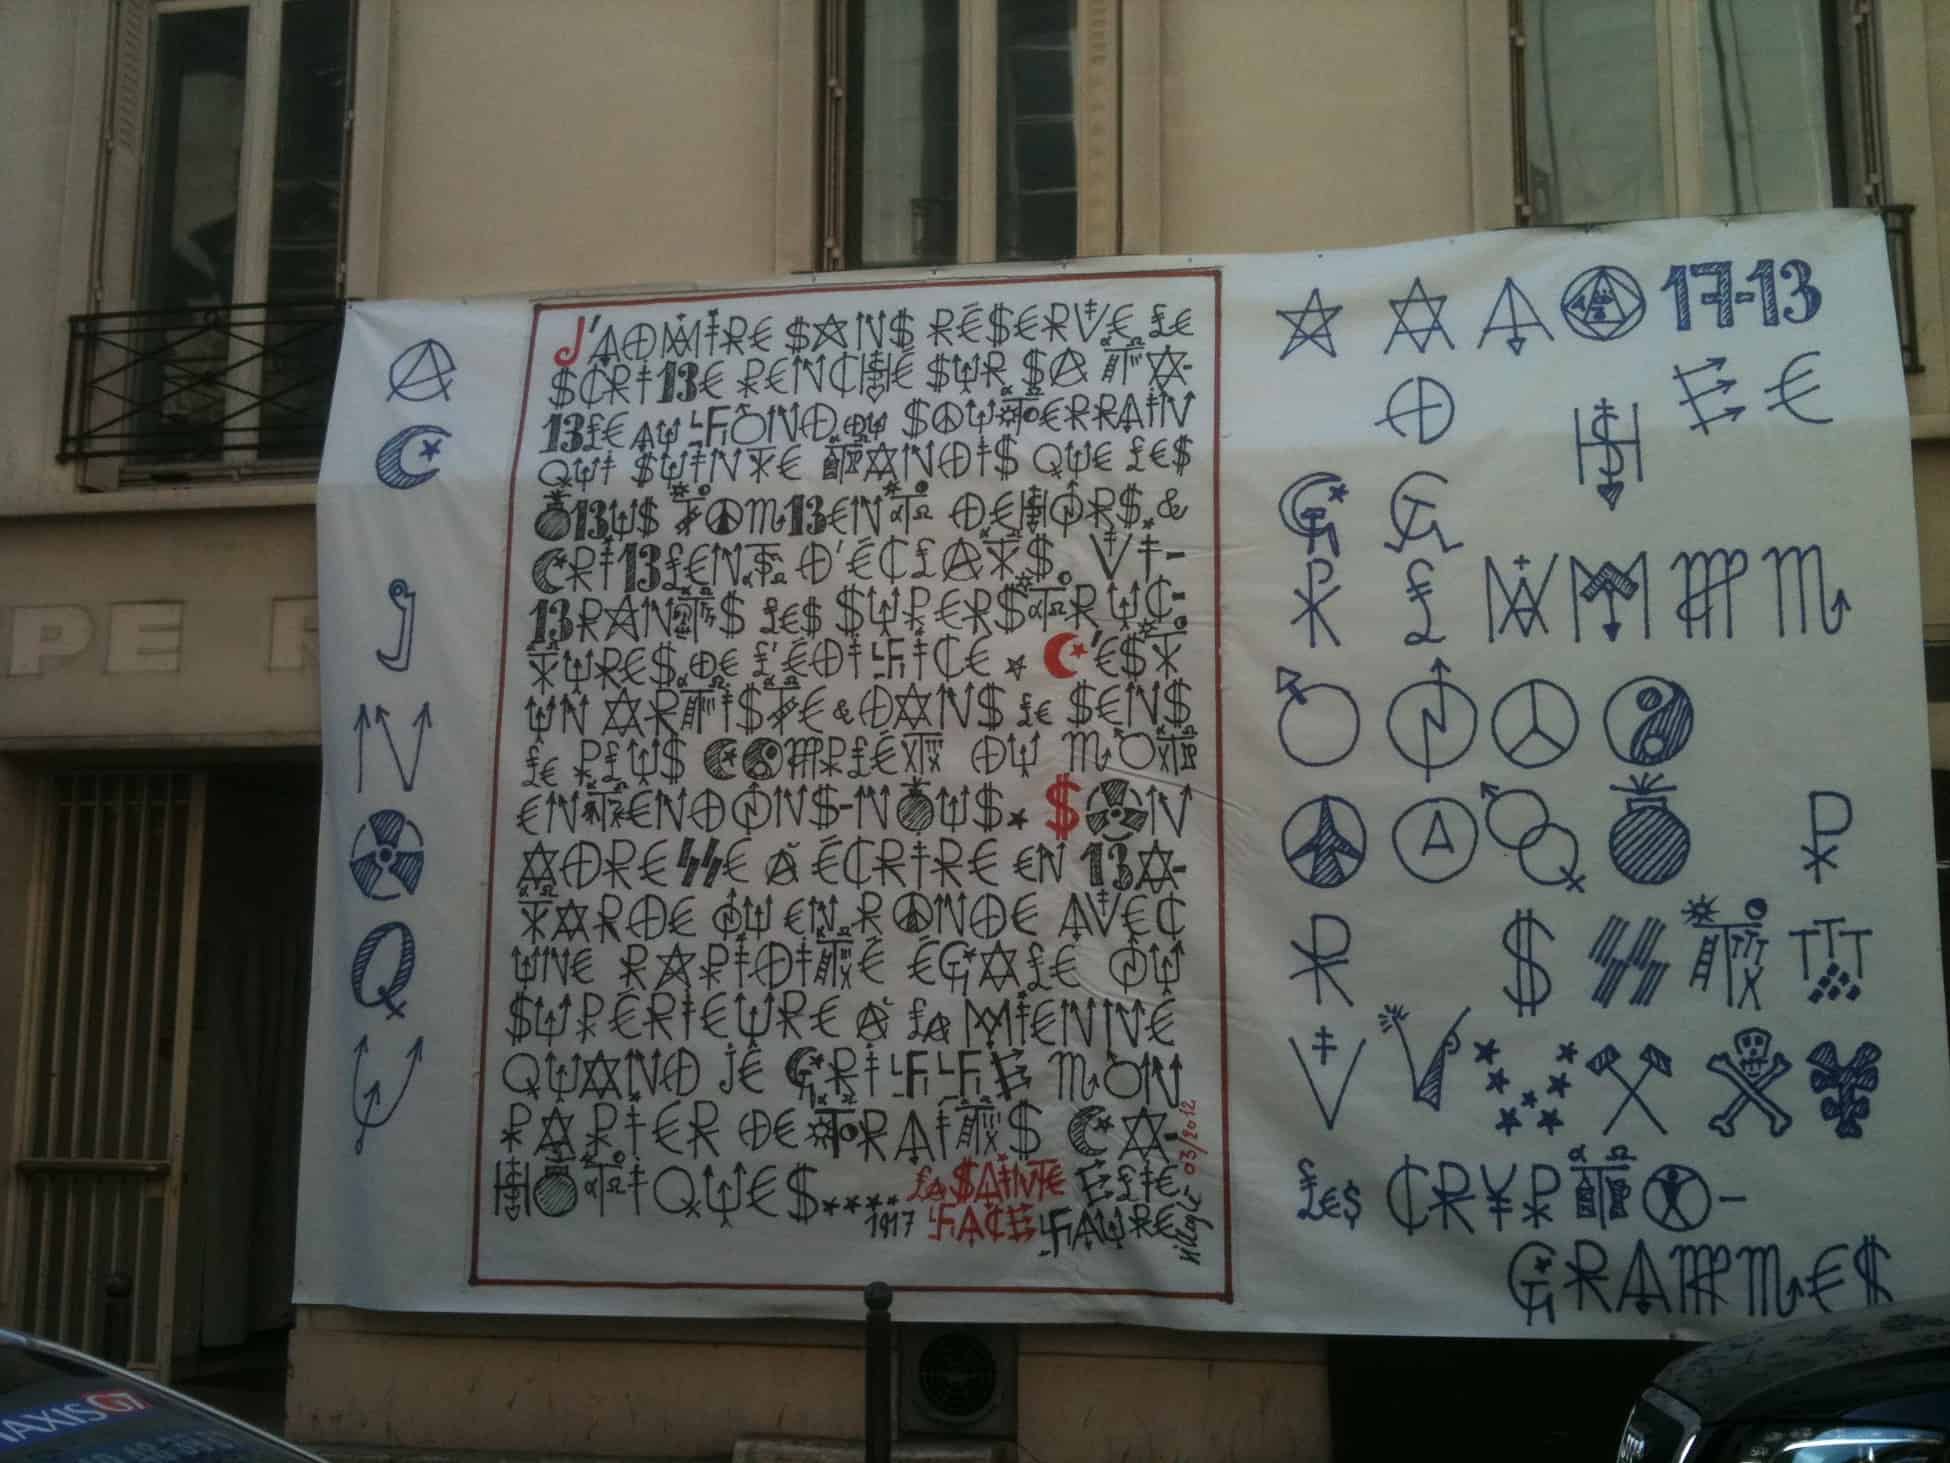 J'ADMIRE SANS RÉSERVE LE
SCRIBE PENCHÉ SUR SA TA-
BLE AU FOND DU SOUTERRAIN
QUI SUINTE TANDIS QUE LES
OBUS TOMBENT DEHORS &
CRIBLENT D'ÉCLATS VI-
BRANTS LES SUPERSTRUC-
TURES DE L'ÉDIFICE C'EST
UN ARTISTE & DANS LE SENS
LE PLUS COMPLET DU MOT
ENTENDONS-NOUS. SON
ADRESSE À ÉCRIRE EN BA-
TARDE OU EN RONDE AVEC
UNE RAPIDITÉ ÉGALE OU
SUPÉRIEURE À LA MIENNE
QUAND JE GRIFFE MON
PAPIER DE TRAITS CA-
HOTIQUES....
LA SAINTE FACE
ELIE FAURE
1917
Villeglé 03/2012
A
C
J
N
O
Q
U
17-13
LES CRYPTO-
GRAMMES
PE R
TAXIS G7